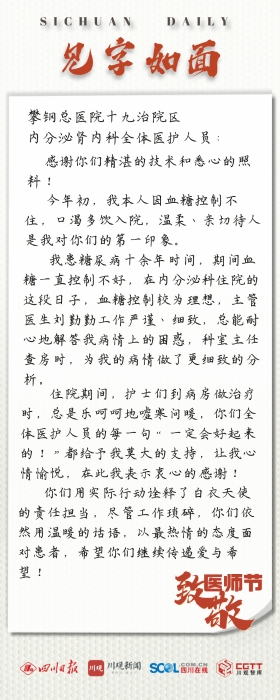 SICHUAN DAILY
见字如面
攀钢总医院十九冶院区
内分泌肾内科全体医护人员：
感谢你们精湛的技术和悉心的照
料！
今年初，我本人因血糖控制不
住，口渴多饮入院，温柔、亲切待人
是我对你们的第一印象。
我患糖尿病十余年时间，期间血
糖一直控制不好，在内分泌科住院的
这段日子，血糖控制较为理想，主管
医生刘勤勤工作严谨、细致，总能耐
心地解答我病情上的困惑，科室主任
查房时，为我的病情做了更细致的分
析。
住院期间，护士们到病房做治疗
时，总是乐呵呵地嘘寒问暖，你们全
体医护人员的每一句“一定会好起来
的！”都给予我莫大的支持，让我心
情愉悦，在此我表示衷心的感谢！
你们用实际行动诠释了白衣天使
的责任担当，尽管工作琐碎，你们依
然用温暖的话语，以最热情的态度面
对患者，希望你们继续传递爱与希
望！
致敬医师节
四川日报 川观新闻 SCOL.COM.CN 四川在线 CGTT 川观智库